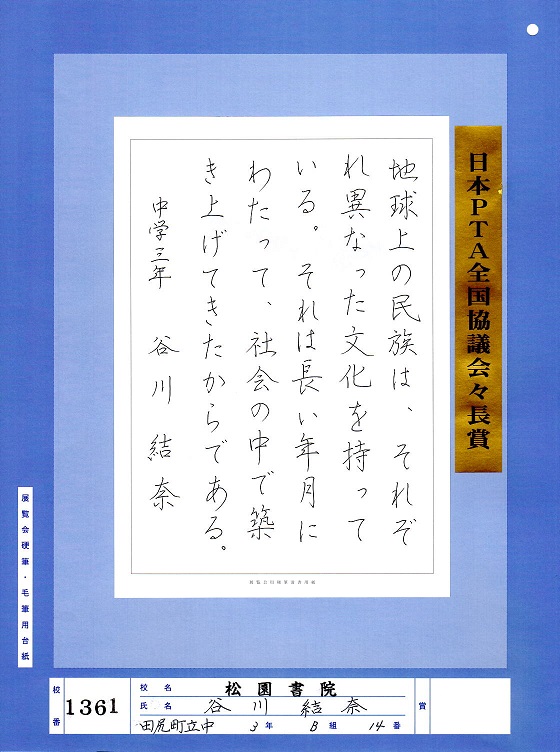 日本PTA全国協議会々長賞
地球上の民族は、それぞ
れ異なった文化を持って
いる。それは長い年月に
わたって、社会の中で築
き上げてきたからである。
中学三年 谷川結奈
展覧会硬筆・毛筆用台紙
校番 1361
校名 松園書院
氏名 谷川 結奈
田尻町立中 3年 B組 14番
賞